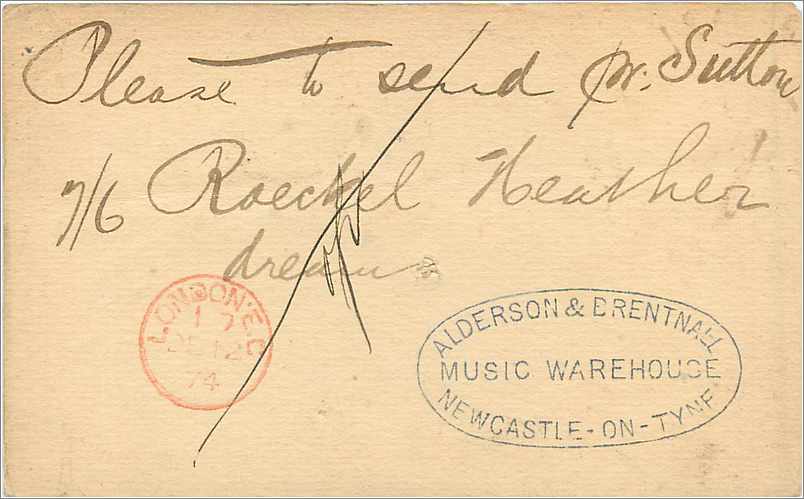 Please to send pr. Sutton
7/6 Roeckel Heather
dreams
LONDON E.C
1 7
DE 12
74
ALDERSON & BRENTNALL
MUSIC WAREHOUSE
NEWCASTLE-ON-TYNE